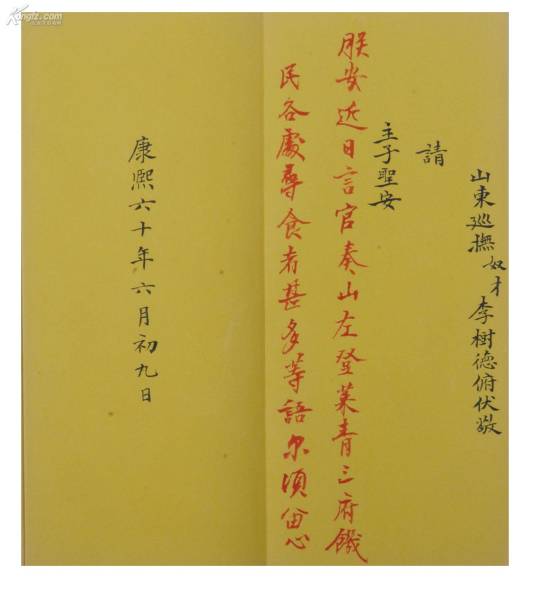 山東巡撫奴才李樹德俯伏敬
請
主子聖安
朕安近日言官奏山左登萊青三府饑
民各處尋食者甚多等語尔須留心
康熙六十年六月初九日
Kongfz.com